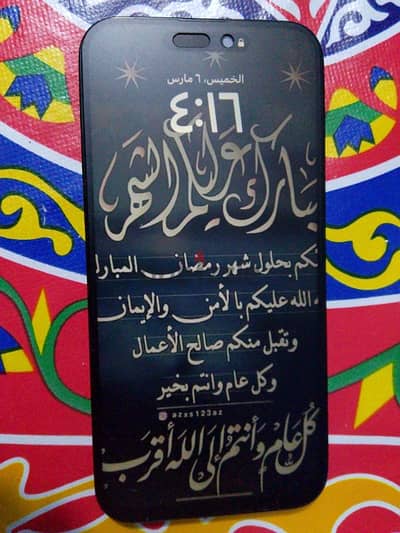 الخميس، ٦ مارس
٤:١٦
مبارك عليكم الشهر
نكم بحلول شهر رمضان المبارك
ه الله عليكم بالأمن والإيمان
وتقبل منكم صالح الأعمال
وكل عام وانتم بخير
azss123az
كل عام وأنتم إلى الله أقرب